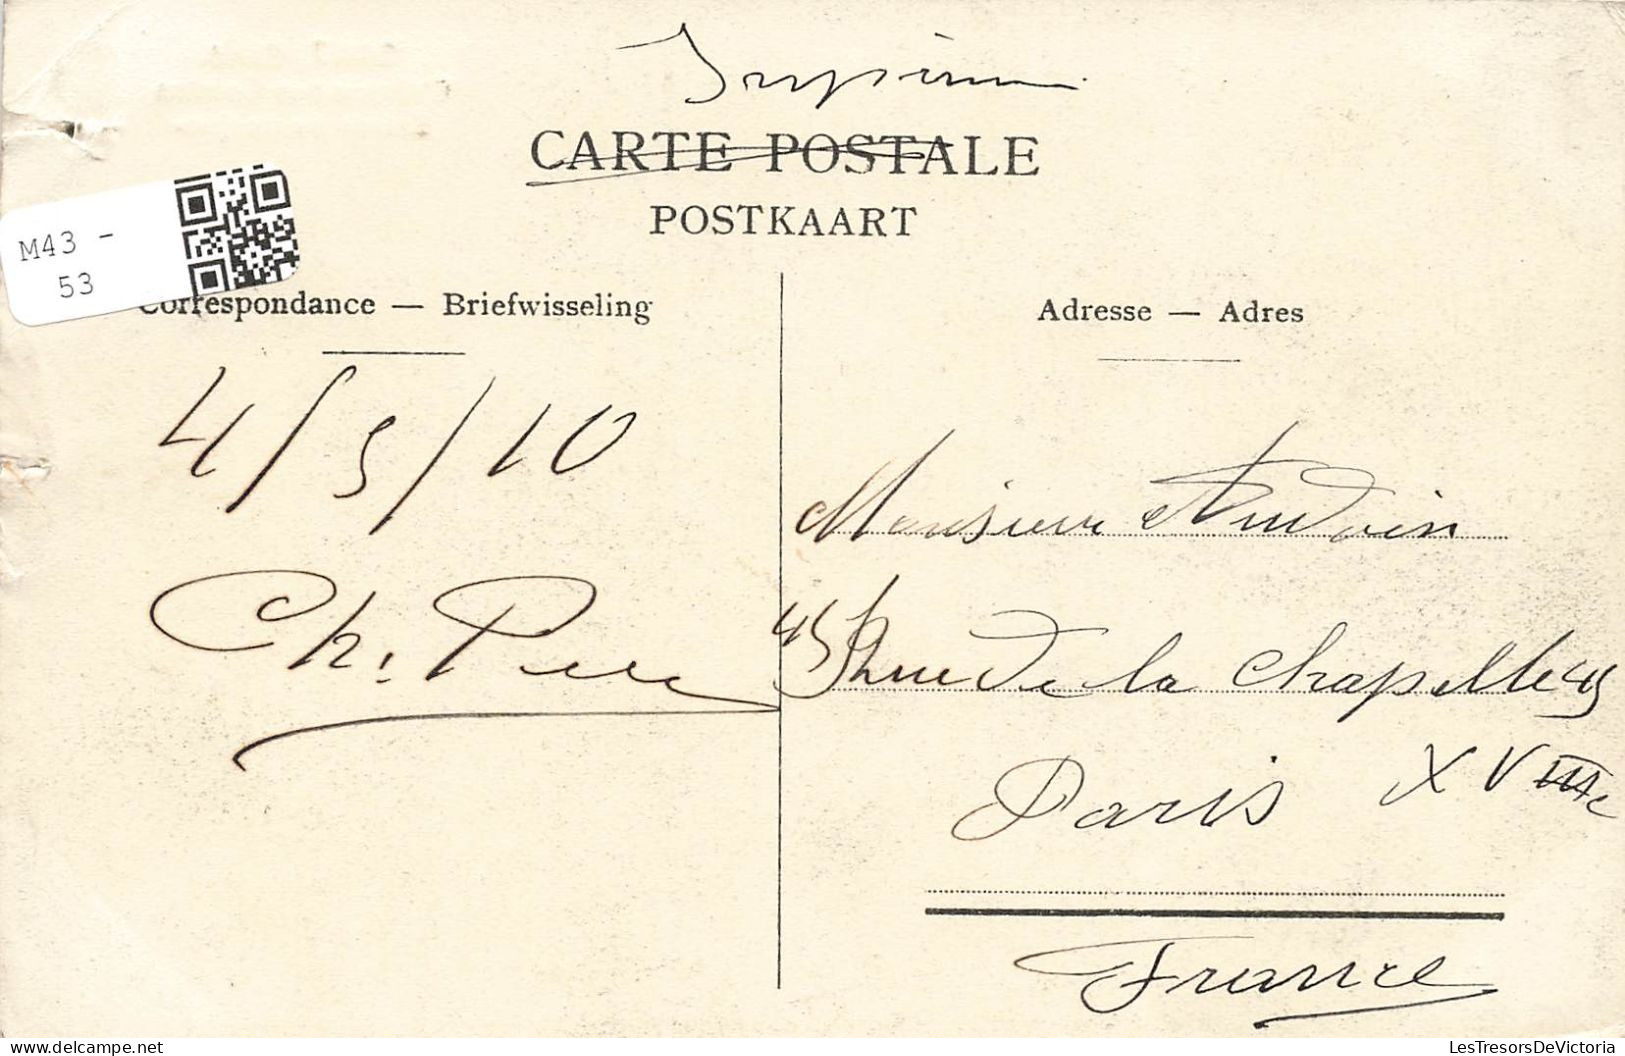 CARTE POSTALE
POSTKAART
M43 -
53
Correspondance — Briefwisseling
Adresse — Adres
4/5/10
Monsieur Audoin
45 Rue de la Chapelle 45
Paris XVIIIe
Ch.
France
LesTresorsDeVictoria